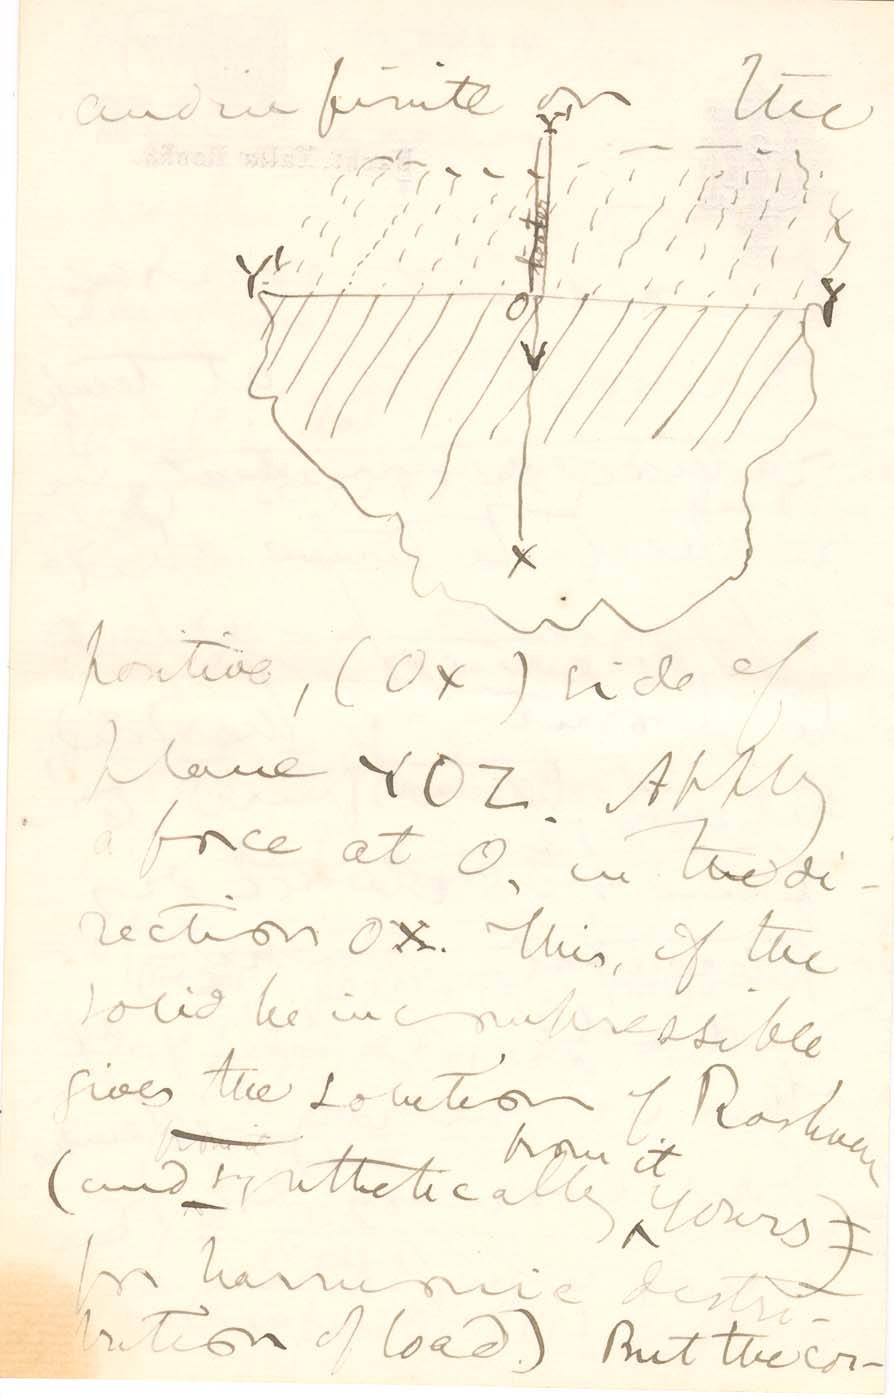 and infinite on the
Y'
Y'
O
Y
X
positive, (OX) side of
plane YOZ. Apply
a force at O, in the di-
rection OX. This, if the
solid be incompressible
gives the solution of
from it
(and synthetically ‸ yours)
for harmonic distri-
bution of load.) But the cor-